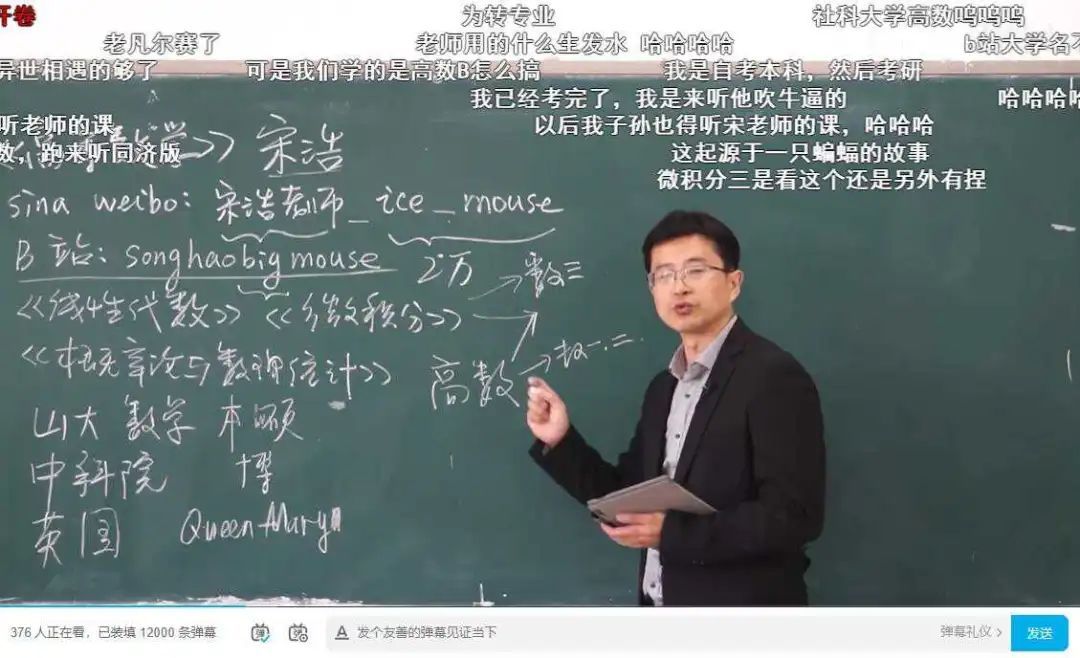 开卷
为转专业
社科大学高数呜呜呜
老凡尔赛了
老师用的什么生发水 哈哈哈哈
b站大学名不
异世相遇的够了
可是我们学的是高数B怎么搞
我是自考本科，然后考研
我已经考完了，我是来听他吹牛逼的
哈哈哈哈
听老师的课
以后我子孙也得听宋老师的课，哈哈哈
数，跑来听同济版
这起源于一只蝙蝠的故事
微积分三是看这个还是另外有捏
宋浩
sina weibo：宋浩老师_ice_mouse
B 站：songhaobigmouse 2万
数三
《线性代数》《微积分》
《概率论与数理统计》 高数 数一.二.
山大 数学 本硕
中科院 博
英国 Queen Mary
376 人正在看，已装填 12000 条弹幕
弹
弹
A 发个友善的弹幕见证当下
弹幕礼仪 >
发送